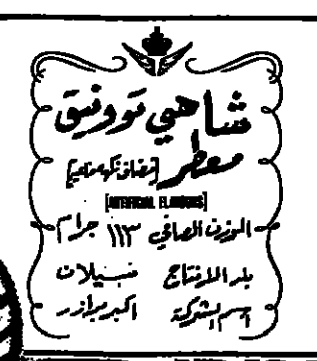 شاهي تووفيق
معطر [مضاف نكهة صناعية]
[ARTIFICIAL FLAVOURS]
الوزن الصافي ١١٣ جرام
بلد الانتاج سيلان
اسم الشركة اكبر برازر